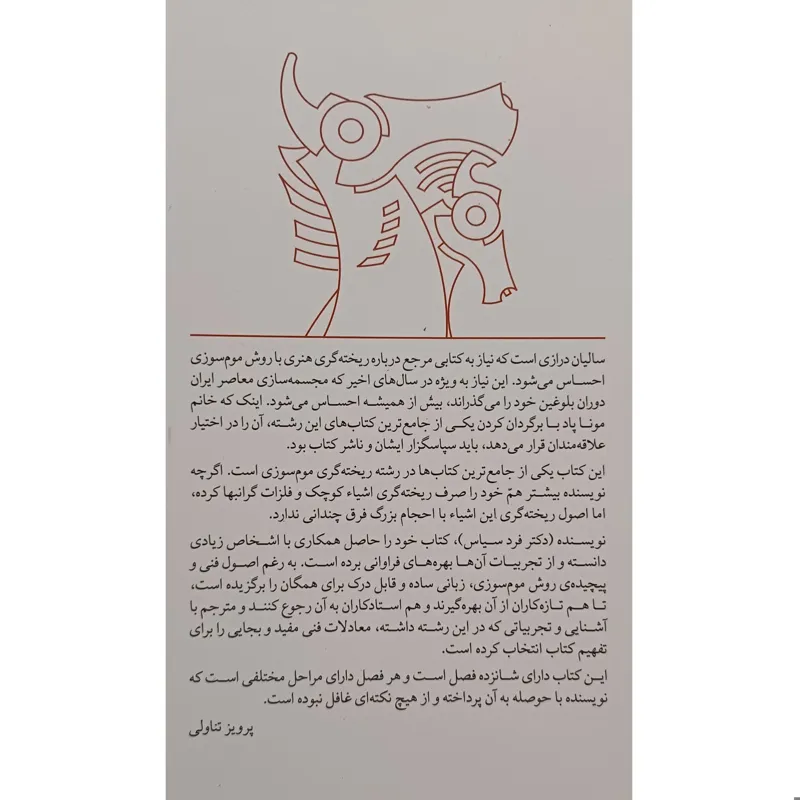 سالیان درازی است که نیاز به کتابی مرجع درباره ریخته‌گری هنری با روش موم‌سوزی
احساس می‌شود. این نیاز به ویژه در سال‌های اخیر که مجسمه‌سازی معاصر ایران
دوران بلوغین خود را می‌گذراند، بیش از همیشه احساس می‌شود. اینک که خانم
مونا پاد با برگردان کردن یکی از جامع‌ترین کتاب‌های این رشته، آن را در اختیار
علاقه‌مندان قرار می‌دهد، باید سپاسگزار ایشان و ناشر کتاب بود.
این کتاب یکی از جامع‌ترین کتاب‌ها در رشته ریخته‌گری موم‌سوزی است. اگرچه
نویسنده بیشتر همّ خود را صرف ریخته‌گری اشیاء کوچک و فلزات گرانبها کرده،
اما اصول ریخته‌گری این اشیاء با احجام بزرگ فرق چندانی ندارد.
نویسنده (دکتر فرد سیاس)، کتاب خود را حاصل همکاری با اشخاص زیادی
دانسته و از تجربیات آن‌ها بهره‌های فراوانی برده است. به رغم اصول فنی و
پیچیده‌ی روش موم‌سوزی، زبانی ساده و قابل درک برای همگان را برگزیده است،
تا هم تازه‌کاران از آن بهره‌گیرند و هم استادکاران به آن رجوع کنند و مترجم با
آشنایی و تجربیاتی که در این رشته داشته، معادلات فنی مفید و بجایی را برای
تفهیم کتاب انتخاب کرده است.
این کتاب دارای شانزده فصل است و هر فصل دارای مراحل مختلفی است که
نویسنده با حوصله به آن پرداخته و از هیچ نکته‌ای غافل نبوده است.
پرویز تناولی